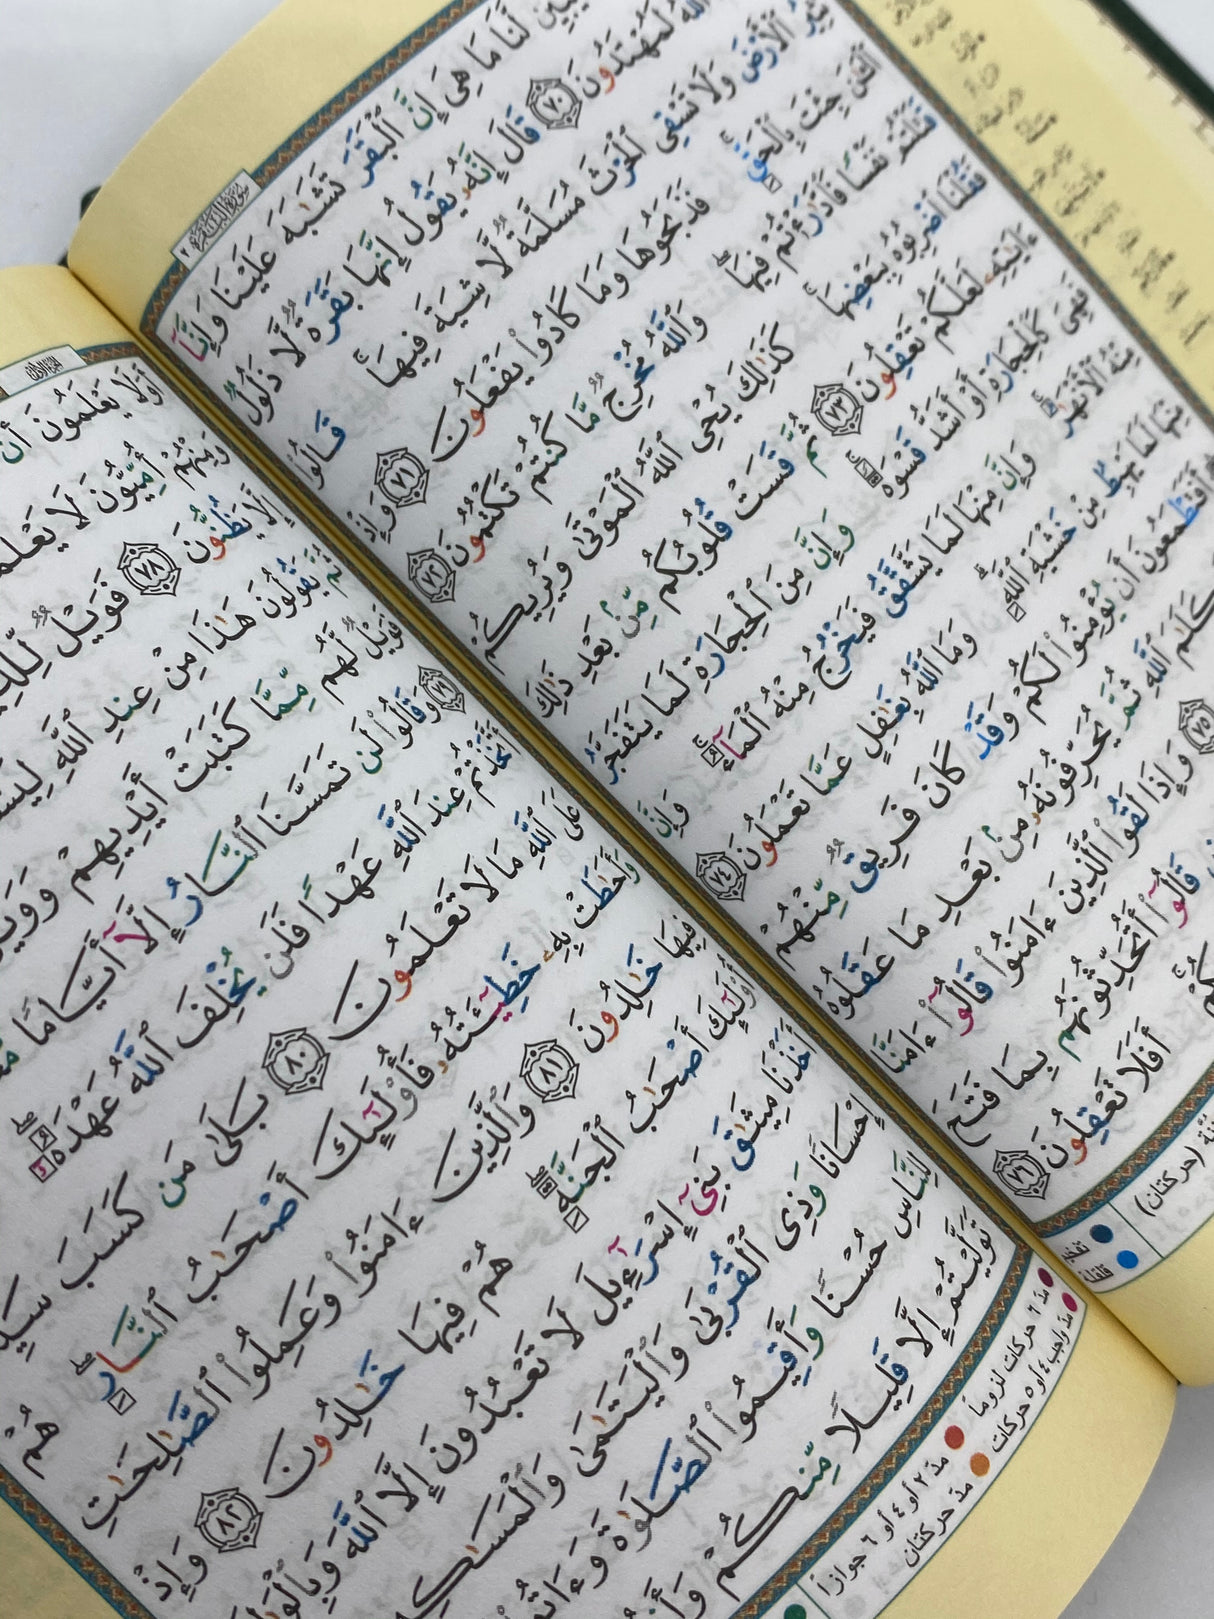 سورة البقرة ٢
يُبَيِّن لَّنَا مَا هِيَ إِنَّ ٱلْبَقَرَ تَشَٰبَهَ عَلَيْنَا وَإِنَّآ
ٱللَّهُ لَمُهْتَدُونَ ٧٠ قَالَ إِنَّهُۥ يَقُولُ إِنَّهَا بَقَرَةٌ لَّا ذَلُولٌ
تُثِيرُ ٱلْأَرْضَ وَلَا تَسْقِى ٱلْحَرْثَ مُسَلَّمَةٌ لَّا شِيَةَ فِيهَا ۚ قَالُوا۟
ٱلْـَٰٔنَ جِئْتَ بِٱلْحَقِّ ۚ فَذَبَحُوهَا وَمَا كَادُوا۟ يَفْعَلُونَ ٧١ وَإِذْ
قَتَلْتُمْ نَفْسًا فَٱدَّٰرَْٰٔتُمْ فِيهَا ۖ وَٱللَّهُ مُخْرِجٌ مَّا كُنتُمْ تَكْتُمُونَ ٧٢
فَقُلْنَا ٱضْرِبُوهُ بِبَعْضِهَا ۚ كَذَٰلِكَ يُحْىِ ٱللَّهُ ٱلْمَوْتَىٰ وَيُرِيكُمْ
ءَايَٰتِهِۦ لَعَلَّكُمْ تَعْقِلُونَ ٧٣ ثُمَّ قَسَتْ قُلُوبُكُم مِّنۢ بَعْدِ ذَٰلِكَ
فَهِىَ كَٱلْحِجَارَةِ أَوْ أَشَدُّ قَسْوَةً ۚ وَإِنَّ مِنَ ٱلْحِجَارَةِ لَمَا يَتَفَجَّرُ
مِنْهُ ٱلْأَنْهَٰرُ ۚ وَإِنَّ مِنْهَا لَمَا يَشَّقَّقُ فَيَخْرُجُ مِنْهُ ٱلْمَآءُ ۚ وَإِنَّ
مِنْهَا لَمَا يَهْبِطُ مِنْ خَشْيَةِ ٱللَّهِ ۗ وَمَا ٱللَّهُ بِغَٰفِلٍ عَمَّا تَعْمَلُونَ ٧٤
أَفَتَطْمَعُونَ أَن يُؤْمِنُوا۟ لَكُمْ وَقَدْ كَانَ فَرِيقٌ مِّنْهُمْ
كَلَٰمَ ٱللَّهِ ثُمَّ يُحَرِّفُونَهُۥ مِنۢ بَعْدِ مَا عَقَلُوهُ
٧٥ وَإِذَا لَقُوا۟ ٱلَّذِينَ ءَامَنُوا۟ قَالُوٓا۟ ءَامَنَّا
قَالُوٓا۟ أَتُحَدِّثُونَهُم بِمَا فَتَحَ
أَفَلَا تَعْقِلُونَ ٧٦
(حركتان) تفخيم
قلقلة
أَوَلَا يَعْلَمُونَ أَنَّ
وَمِنْهُمْ أُمِّيُّونَ لَا يَعْلَمُونَ
إِلَّا يَظُنُّونَ ٧٨ فَوَيْلٌ لِّلَّذِينَ
ثُمَّ يَقُولُونَ هَٰذَا مِنْ عِندِ ٱللَّهِ
فَوَيْلٌ لَّهُم مِّمَّا كَتَبَتْ أَيْدِيهِمْ وَوَيْلٌ
٧٩ وَقَالُوا۟ لَن تَمَسَّنَا ٱلنَّارُ إِلَّآ أَيَّامًا
أَتَّخَذْتُمْ عِندَ ٱللَّهِ عَهْدًا فَلَن يُخْلِفَ ٱللَّهُ عَهْدَهُۥٓ ۖ
عَلَى ٱللَّهِ مَا لَا تَعْلَمُونَ ٨٠ بَلَىٰ مَن كَسَبَ
وَأَحَٰطَتْ بِهِۦ خَطِيٓـَٔتُهُۥ فَأُو۟لَٰٓئِكَ أَصْحَٰبُ ٱلنَّارِ ۖ هُمْ
فِيهَا خَٰلِدُونَ ٨١ وَٱلَّذِينَ ءَامَنُوا۟ وَعَمِلُوا۟ ٱلصَّٰلِحَٰتِ
أُو۟لَٰٓئِكَ أَصْحَٰبُ ٱلْجَنَّةِ ۖ هُمْ فِيهَا خَٰلِدُونَ ٨٢ وَإِذْ
أَخَذْنَا مِيثَٰقَ بَنِىٓ إِسْرَٰٓءِيلَ لَا تَعْبُدُونَ إِلَّا ٱللَّهَ
إِحْسَانًا وَذِى ٱلْقُرْبَىٰ وَٱلْيَتَٰمَىٰ
لِلنَّاسِ حُسْنًا وَأَقِيمُوا۟ ٱلصَّلَوٰةَ
تَوَلَّيْتُمْ إِلَّا قَلِيلًا مِّنكُمْ
مدّ ٦ حركات لزوماً مدّ ٢ أو ٤ أو ٦ جوازاً
مدّ واجب ٤ أو ٥ حركات مدّ حركتان